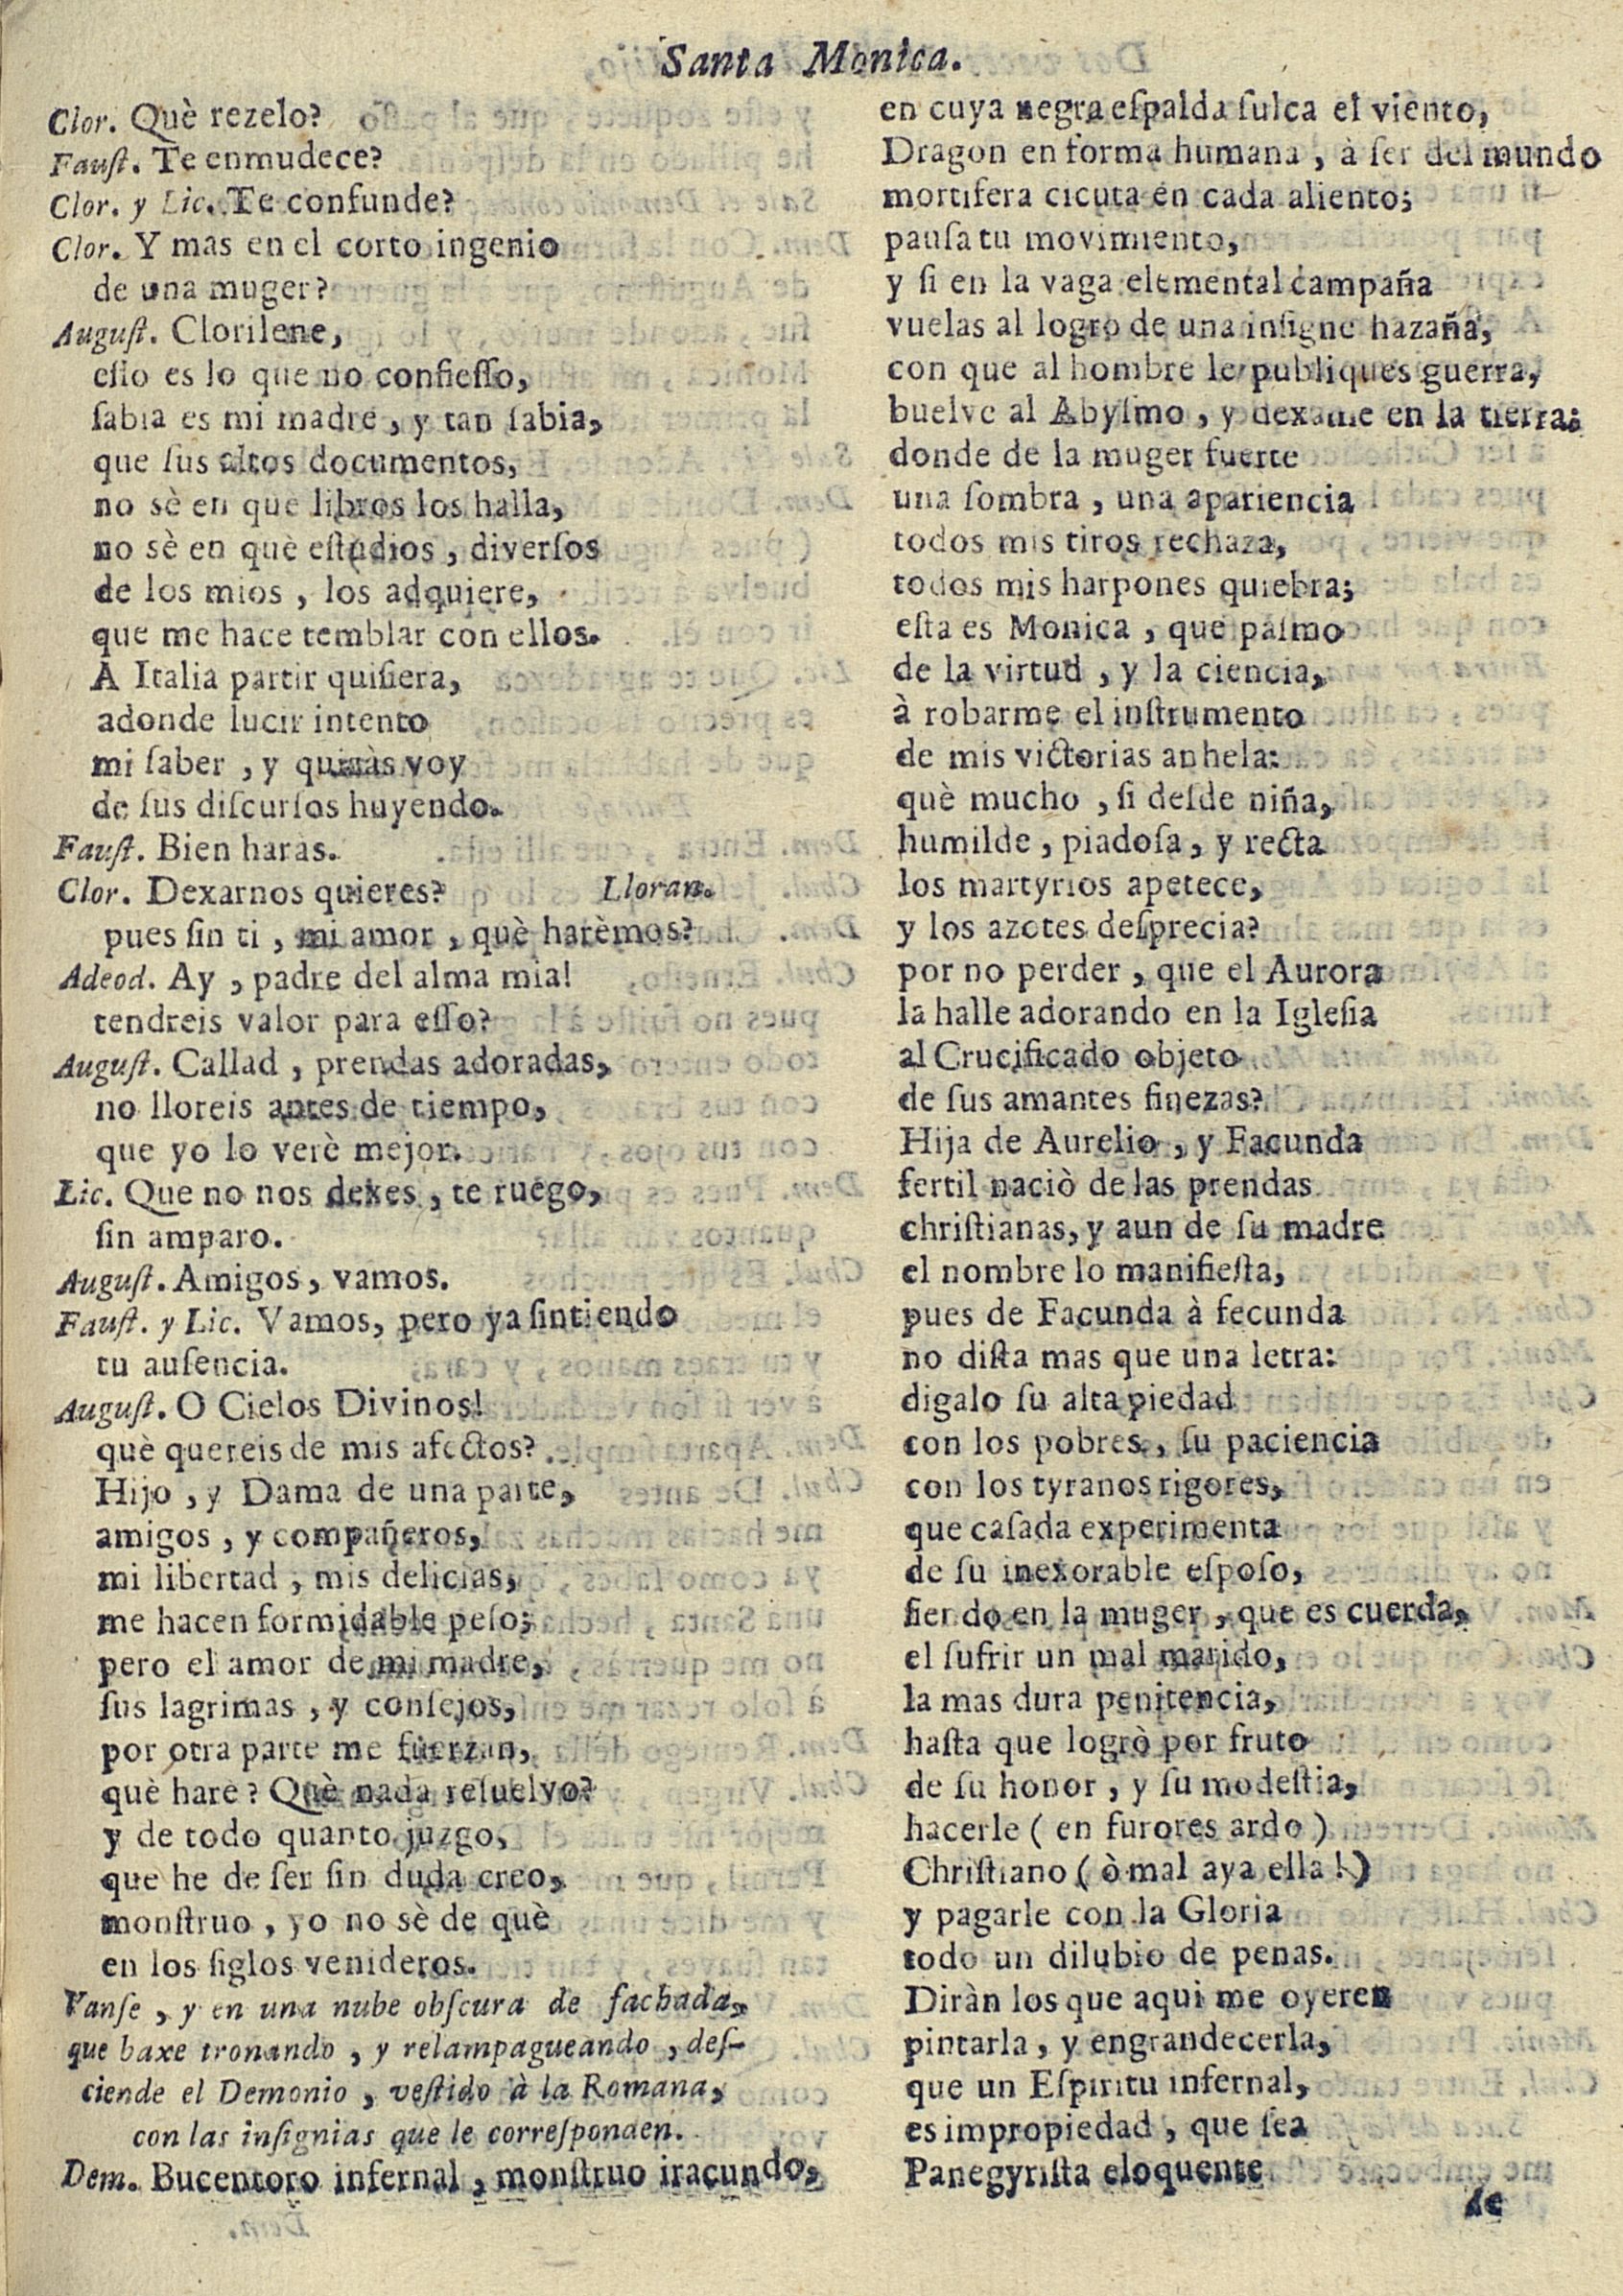 Santa Monica.
Clor. Què rezelo?
Fauſt. Te enmudece?
Clor. y Lic. Te confunde?
Clor. Y mas en el corto ingenio
de una muger?
Auguſt. Clorilene,
eſto es lo que no confieſſo,
ſabia es mi madre, y tan ſabia,
que ſus altos documentos,
no sè en que libros los halla,
no sè en què eſtudios, diverſos
de los mios, los adquiere,
que me hace temblar con ellos.
A Italia partir quiſiera,
adonde lucir intento
mi ſaber, y quizàs voy
de ſus diſcurſos huyendo.
Fauſt. Bien haràs.
Clor. Dexarnos quieres? Lloran.
pues ſin ti, mi amor, què harèmos?
Adeod. Ay, padre del alma mia!
tendreis valor para eſſo?
Auguſt. Callad, prendas adoradas,
no lloreis antes de tiempo,
que yo lo verè mejor.
Lic. Que no nos dexes, te ruego,
ſin amparo.
Auguſt. Amigos, vamos.
Fauſt. y Lic. Vamos, pero ya ſintiendo
tu auſencia.
Auguſt. O Cielos Divinos!
què quereis de mis afectos?
Hijo, y Dama de una parte,
amigos, y compañeros,
mi libertad, mis delicias,
me hacen formidable peſo;
pero el amor de mi madre,
ſus lagrimas, y conſejos,
por otra parte me fuerzan,
què harè? Què nada reſuelvo?
y de todo quanto juzgo,
que he de ſer ſin duda creo,
monſtruo, yo no sè de què
en los ſiglos venideros.
Vanſe, y en una nube obſcura de fachada,
que baxe tronando, y relampagueando, deſ-
ciende el Demonio, veſtido à la Romana,
con las inſignias que le correſponden.
Dem. Bucentoro infernal, monſtruo iracundo,
en cuya negra eſpalda ſulca el viento,
Dragon en forma humana, à ſer del mundo
mortifera cicuta en cada aliento;
pauſa tu movimiento,
y ſi en la vaga elemental campaña
vuelas al logro de una inſigne hazaña,
con que al hombre le publiques guerra,
buelve al Abyſmo, y dexame en la tierra:
donde de la muger fuerte
una ſombra, una apariencia
todos mis tiros rechaza,
todos mis harpones quiebra;
eſta es Monica, que paſmo
de la virtud, y la ciencia,
à robarme el inſtrumento
de mis victorias anhela:
què mucho, ſi deſde niña,
humilde, piadoſa, y recta
los martyrios apetece,
y los azotes deſprecia?
por no perder, que el Aurora
la halle adorando en la Igleſia
al Crucificado objeto
de ſus amantes finezas?
Hija de Aurelio, y Facunda
fertil naciò de las prendas
chriſtianas, y aun de ſu madre
el nombre lo manifieſta,
pues de Facunda à fecunda
no diſta mas que una letra:
digalo ſu alta piedad
con los pobres, ſu paciencia
con los tyranos rigores,
que caſada experimenta
de ſu inexorable eſpoſo,
ſiendo en la muger, que es cuerda,
el ſufrir un mal marido,
la mas dura penitencia,
haſta que logrò por fruto
de ſu honor, y ſu modeſtia,
hacerle ( en furores ardo )
Chriſtiano ( ò mal aya ella! )
y pagarle con la Gloria
todo un dilubio de penas.
Diràn los que aqui me oyeren
pintarla, y engrandecerla,
que un Eſpiritu infernal,
es impropiedad, que ſea
Panegyriſta eloquente
de